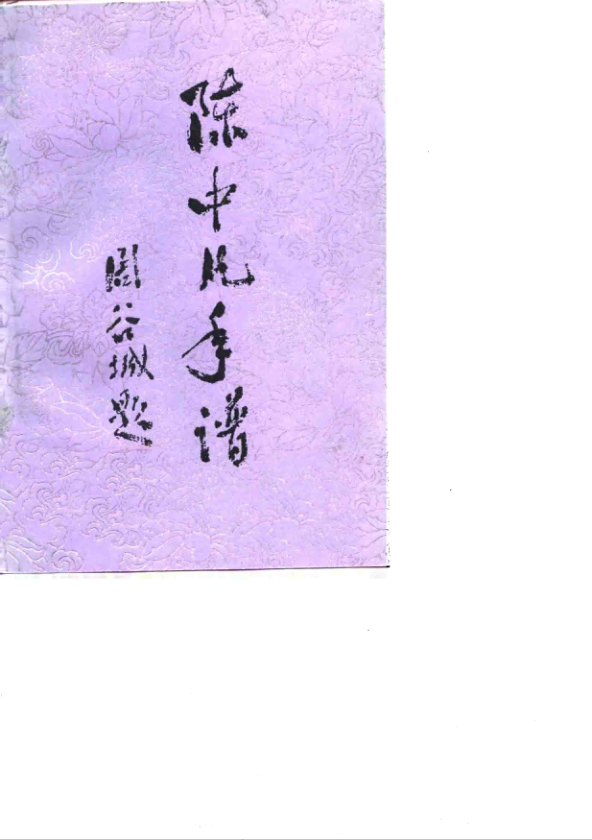 陈中凡年谱
周谷城题